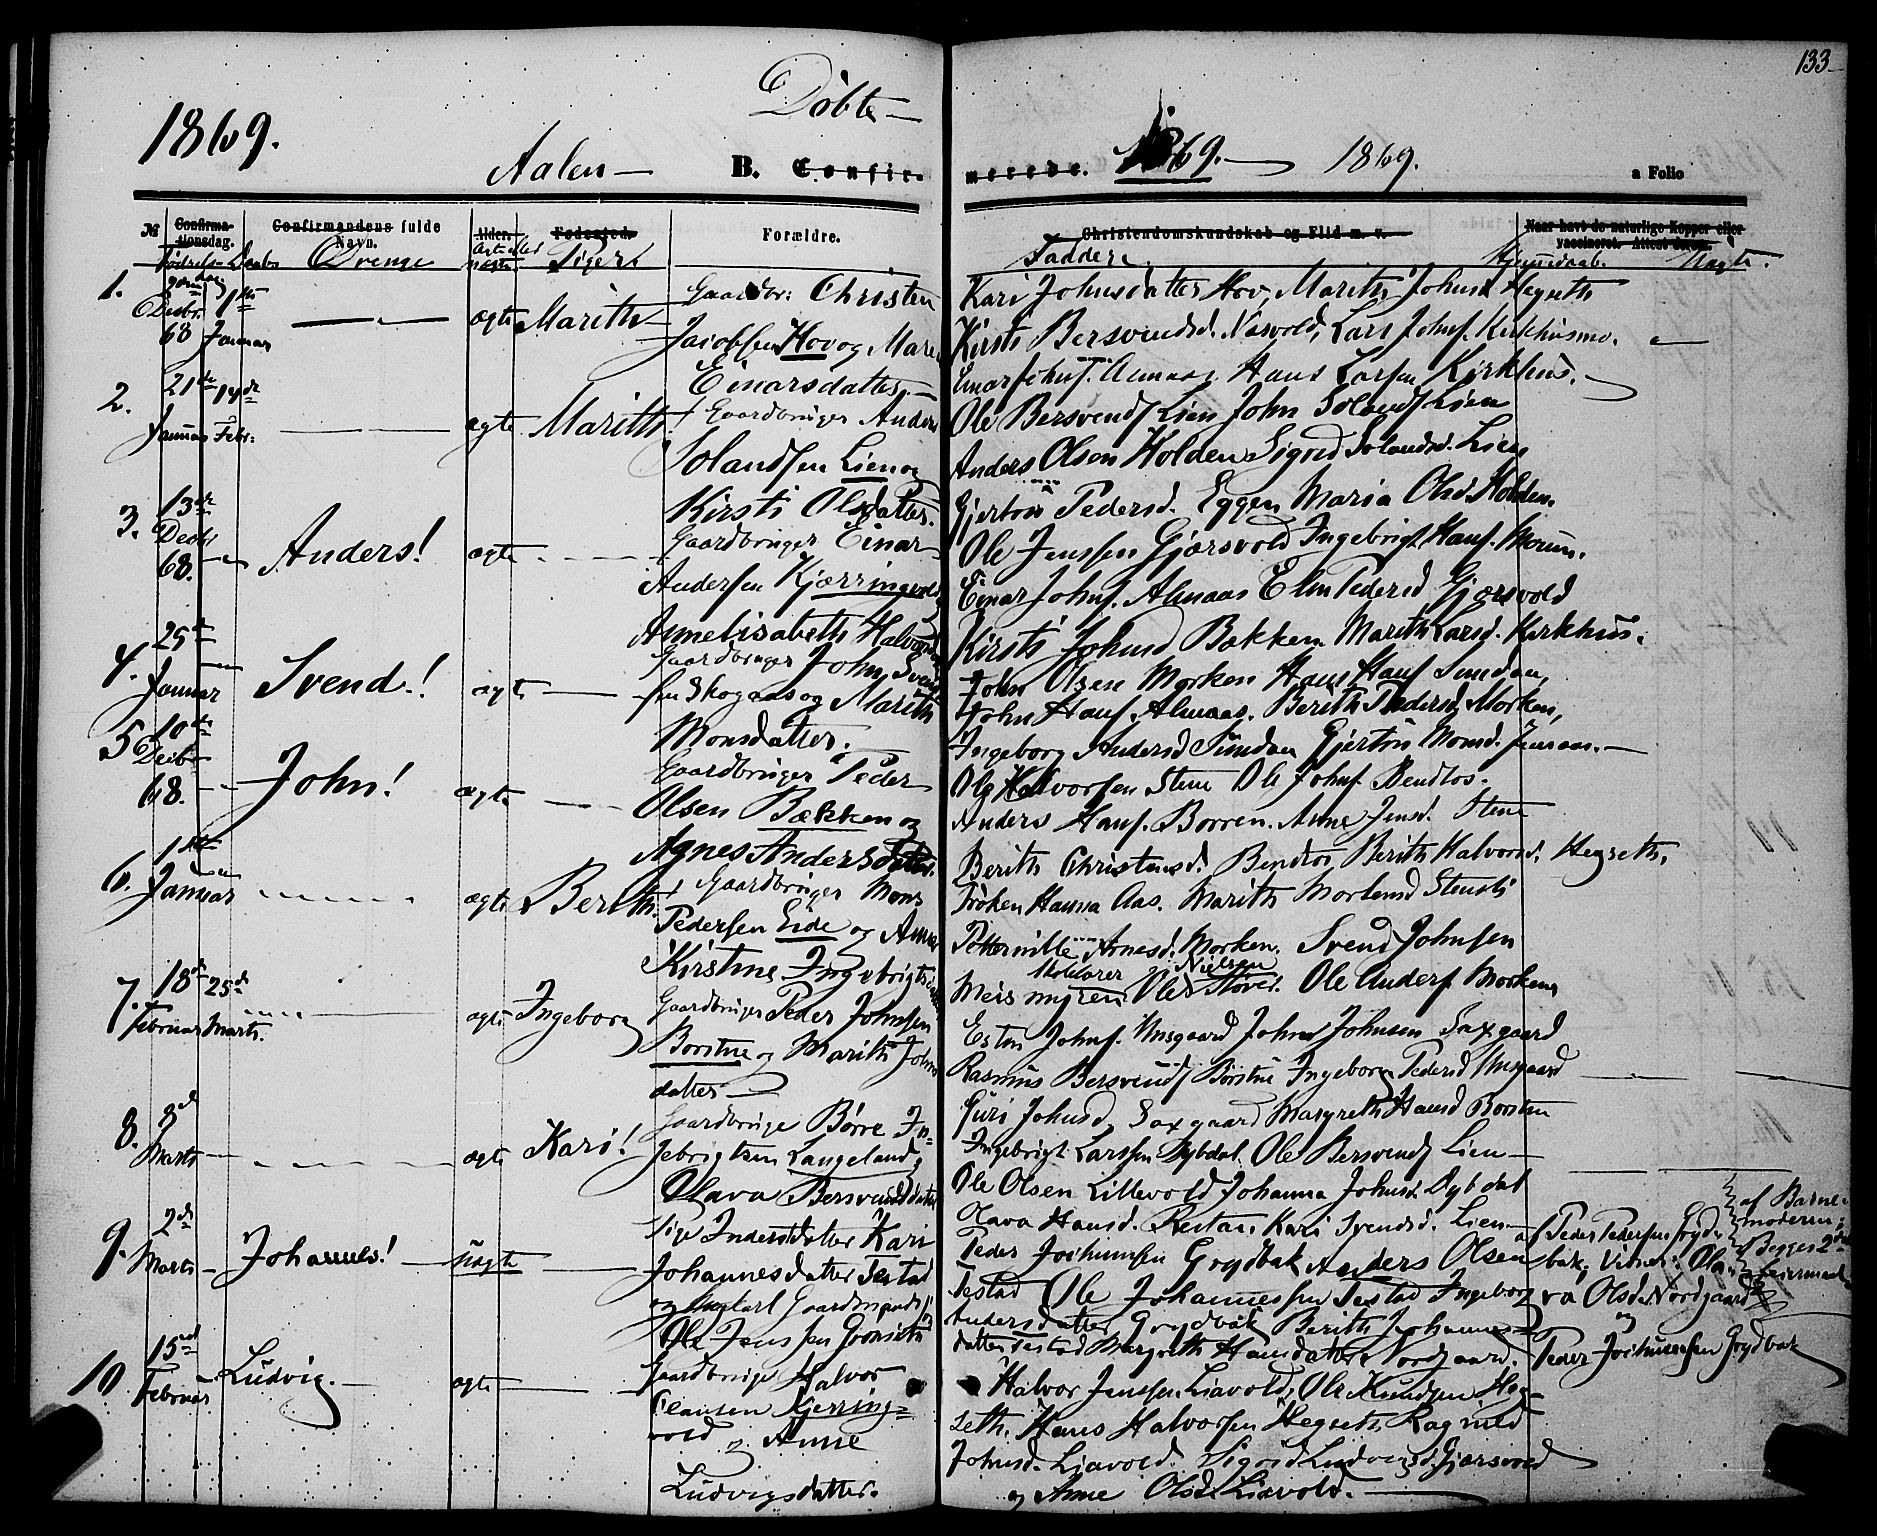 133
Döbte
1869.
Aalen
B. Confir-
merede.
1869.
1869.
a Folio
№
Confirma-
tionsdag.
Confirmandens fulde
Navn.
Alder.
Fødested.
Forældre.
Christendomskundskab og Flid m. v.
Naar havt de naturlige Kopper eller
vaccineret. Attest derom.
Fødsels Daabs
Drenge
Ægte eller
uægte
Piger.
Faddere.
Hjemmedaab.
Uægte.
1.
Decbr. 1ste
68 Januar
ægte Marith
Gaardbr: Christen
Jacobsen Hov og Marit
Einarsdatter
Kari Johnsdatter Hov, Marith Johnsd. Hegseth
Kirsti Bersvendsd. Næsvold, Lars Johns. Kirkhusmo.
Einar Johns. Almaas, Hans Larsen Kirkhus.
2.
21de 14de
Januar Febr:
ægte Marith!
Gaardbruger Anders
Solandsen Lien og
Kirsti Olsdatter.
Ole Bersvends. Lien John Solands. Lien
Anders Olsen Holden Sigrid Solandsd. Lien
Gjertrú Pedersd. Eggen Maria Olsd. Holden.
3.
13de
Decbr
68.
Anders!
ægte
Gaardbruger Einar
Andersen Kjærringvold
Annelisabeth Halvorsd
Ole Jenssen Gjørsvold Ingebrigt Hans. Moun.
Einar Johns. Almaas Elen Pedersd Gjørsvold
Kirsti Johnsd Bakken. Marith Larsd. Kirkhus.
4.
25de
Januar
Svend!
ægte
Gaardbruger John Svend-
sen Skogaas og Marith
Monsdatter.
John Olsen Morken Hans Hans.
John Hans. Almaas. Berith Pedersd Morken,
Ingeborg Andersd Gjertrú Monsd.
5
10de
Decbr
68.
John!
ægte
Gaardbruger Peder
Olsen Bækken og
Agnes Andersdatter.
Ole Halvorsen Stene Ole Johns. Bendtos.
Anders Hans. Borren. Anne Jensd. Stene
Berith Christensd. Bendtos Berith Halvorsd. Hegseth.
6.
1ste
Januar
ægte Berith
Gaardbruger Mons
Pedersen Eide og Anne
Kirstine Ingebrigts
Fröken Hanna Aas. Marith Mortensd
Arnesd. Morken. Svend Johnsen
Ole Nielsen Ole Anders. Morken
7.
18de 25de
Februar Marts.
ægte Ingeborg
Gaardbruger Peder Johnsen
Borstne og Marith Johns
datter
Esten Johns. Unsgaard John Johnsen Saxgaard
Rasmus Bersvends. Borstne Ingeborg Pedersd Unsgaard
Guri Johnsd. Saxgaard Margreth Hansd Borstne
8.
8de
Marts
ægte Kari!
Gaardbruge Börre In-
gebrigtsen Langeland,
Olava Bersvendsdatter
Ingebrigt Larssen Dybdal. Ole Bersvends. Lien
Ole Olsen Lillevold Johanna Johnsd. Dybdal
Olava Hansd. Restan, Kari Svendsd. Lien
9.
2de
Marts
Johannes!
uægte
Pige Inderst Datter Kari
Johannesdatter Testad
og Ungkarl
Ole Jenssen
Peder Jochumsen Grydbak Anders Olsen
Testad Ole Johannessen Testad Ingeborg
Andersdatter Grydbak Berith Johannes-
datter Testad Margreth Hansdatter Nordgaard.
Peder Pedersen Gryd-
bak; Ola-
va Olsd. Nordgaard
og
Peder Jochumsen Grydbak
af Barne-
moderen;
Begges 2det
Leiermaal
10
15de
Februar
Ludvig.
ægte
Gaardbruge Halvor
Clausen Kjerring-
vold og Anne
Ludvigsdatter.
Halvor Jenssen Liavold, Ole Knudsen Heg-
seth. Hans Halvorsen Hegseth, Ragnild
Johnsd. Liavold. Sigrid Ludvigsd. Gjørsvold
og Anne Olsd. Liavold.